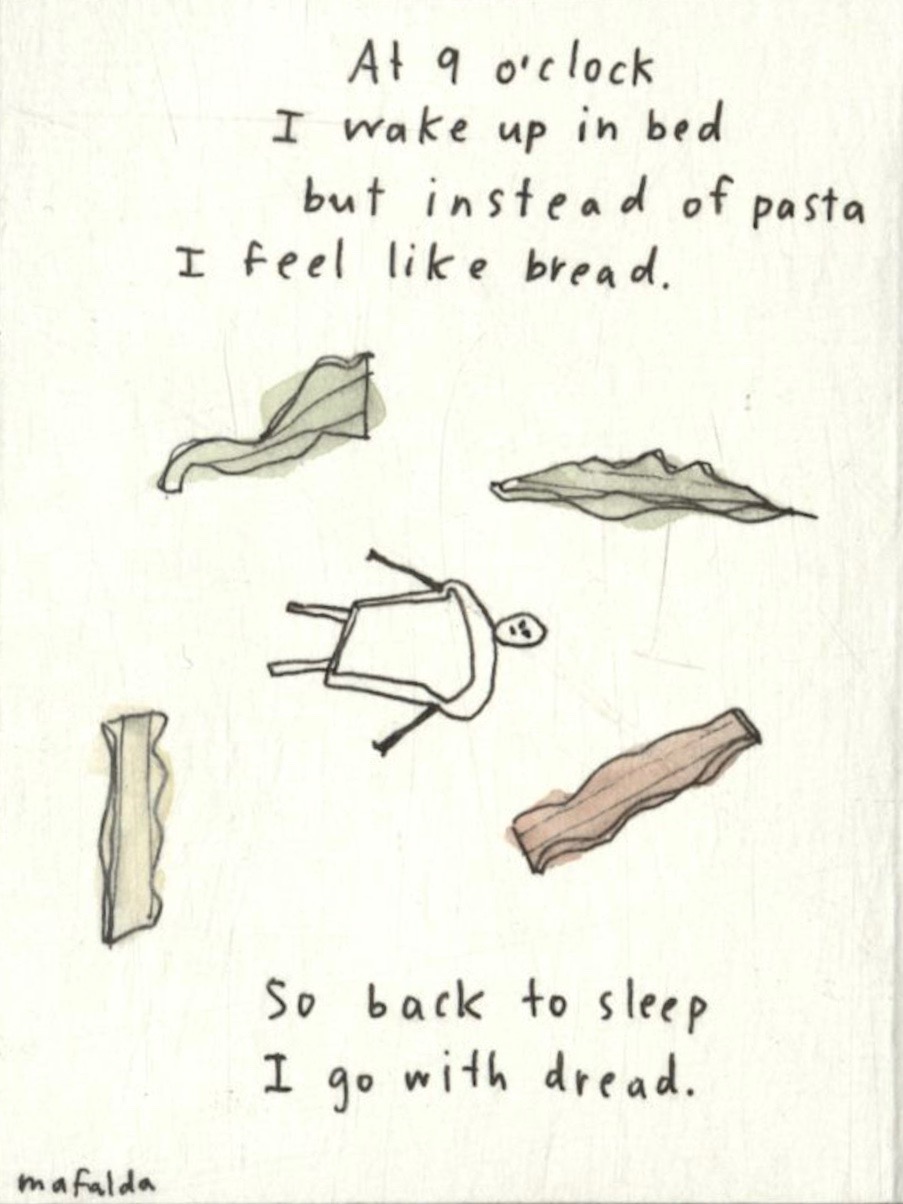 At 9 o'clock
I wake up in bed
but instead of pasta
I feel like bread.
So back to sleep
I go with dread.
mafalda